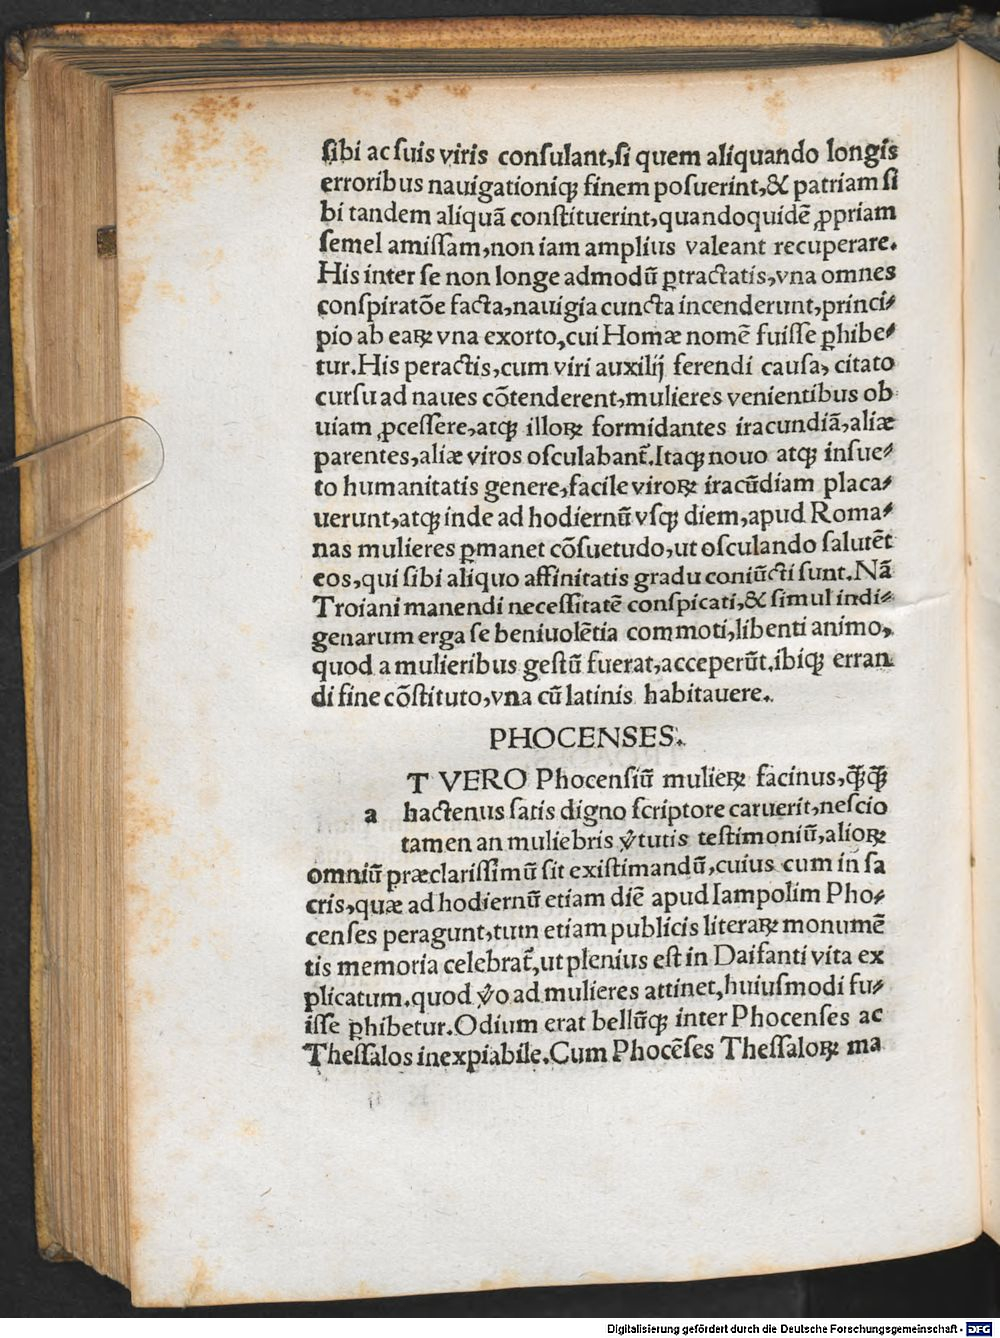 ſibi ac ſuis viris conſulant,ſi quem aliquando longis
erroribus nauigationiqꝫ finem poſuerint,& patriam ſi
bi tandem aliquã conſtituerint,quandoquidẽ ꝓpriam
ſemel amiſſam,non iam amplius valeant recuperare.
His inter ſe non longe admodũ ꝑtractatis,vna omnes
conſpiratõe facta,nauigia cuncta incenderunt,princi⸗
pio ab eaꝝ vna exorto,cui Homæ nomẽ fuiſſe ꝑhibe⸗
tur.His peractis,cum viri auxilij ferendi cauſa, citato
curſu ad naues cõtenderent,mulieres venientibus ob
uiam ꝓceſſere,atqꝫ illoꝝ formidantes iracundiã,aliæ
parentes,aliæ viros oſculabant̃.Itaqꝫ nouo atqꝫ inſue⸗
to humanitatis genere,facile viroꝝ iracũdiam placa⸗
uerunt,atqꝫ inde ad hodiernũ vſqꝫ diem,apud Roma⸗
nas mulieres ꝑmanet cõſuetudo,ut oſculando ſalutẽt
eos,qui ſibi aliquo affinitatis gradu coniũcti ſunt.Nã
Troiani manendi neceſſitatẽ conſpicati,& ſimul indi⸗
genarum erga ſe beniuolẽtia commoti,libenti animo,
quod a mulieribus geſtũ fuerat,acceperũt.ibiqꝫ erran
di fine cõſtituto,vna cũ latinis habitauere.
PHOCENSES.
T VERO Phocenſiũ mulieꝝ facinus,qꝫ̃qꝫ̃
a hactenus ſatis digno ſcriptore caruerit,neſcio
tamen an muliebris v̾tutis teſtimoniũ,alioꝝ
omniũ præclariſſimũ ſit exiſtimandũ,cuius cum in ſa
cris,quæ ad hodiernũ etiam diẽ apud Iampolim Pho⸗
cenſes peragunt,tum etiam publicis literaꝝ monumẽ
tis memoria celebrat̃,ut plenius eſt in Daifanti vita ex
plicatum.quod v̾o ad mulieres attinet,huiuſmodi fu⸗
iſſe ꝑhibetur.Odium erat bellũqꝫ inter Phocenſes ac
Theſſalos inexpiabile.Cum Phocẽſes Theſſaloꝝ ma
Digitalisierung gefördert durch die Deutsche Forschungsgemeinschaft - DFG